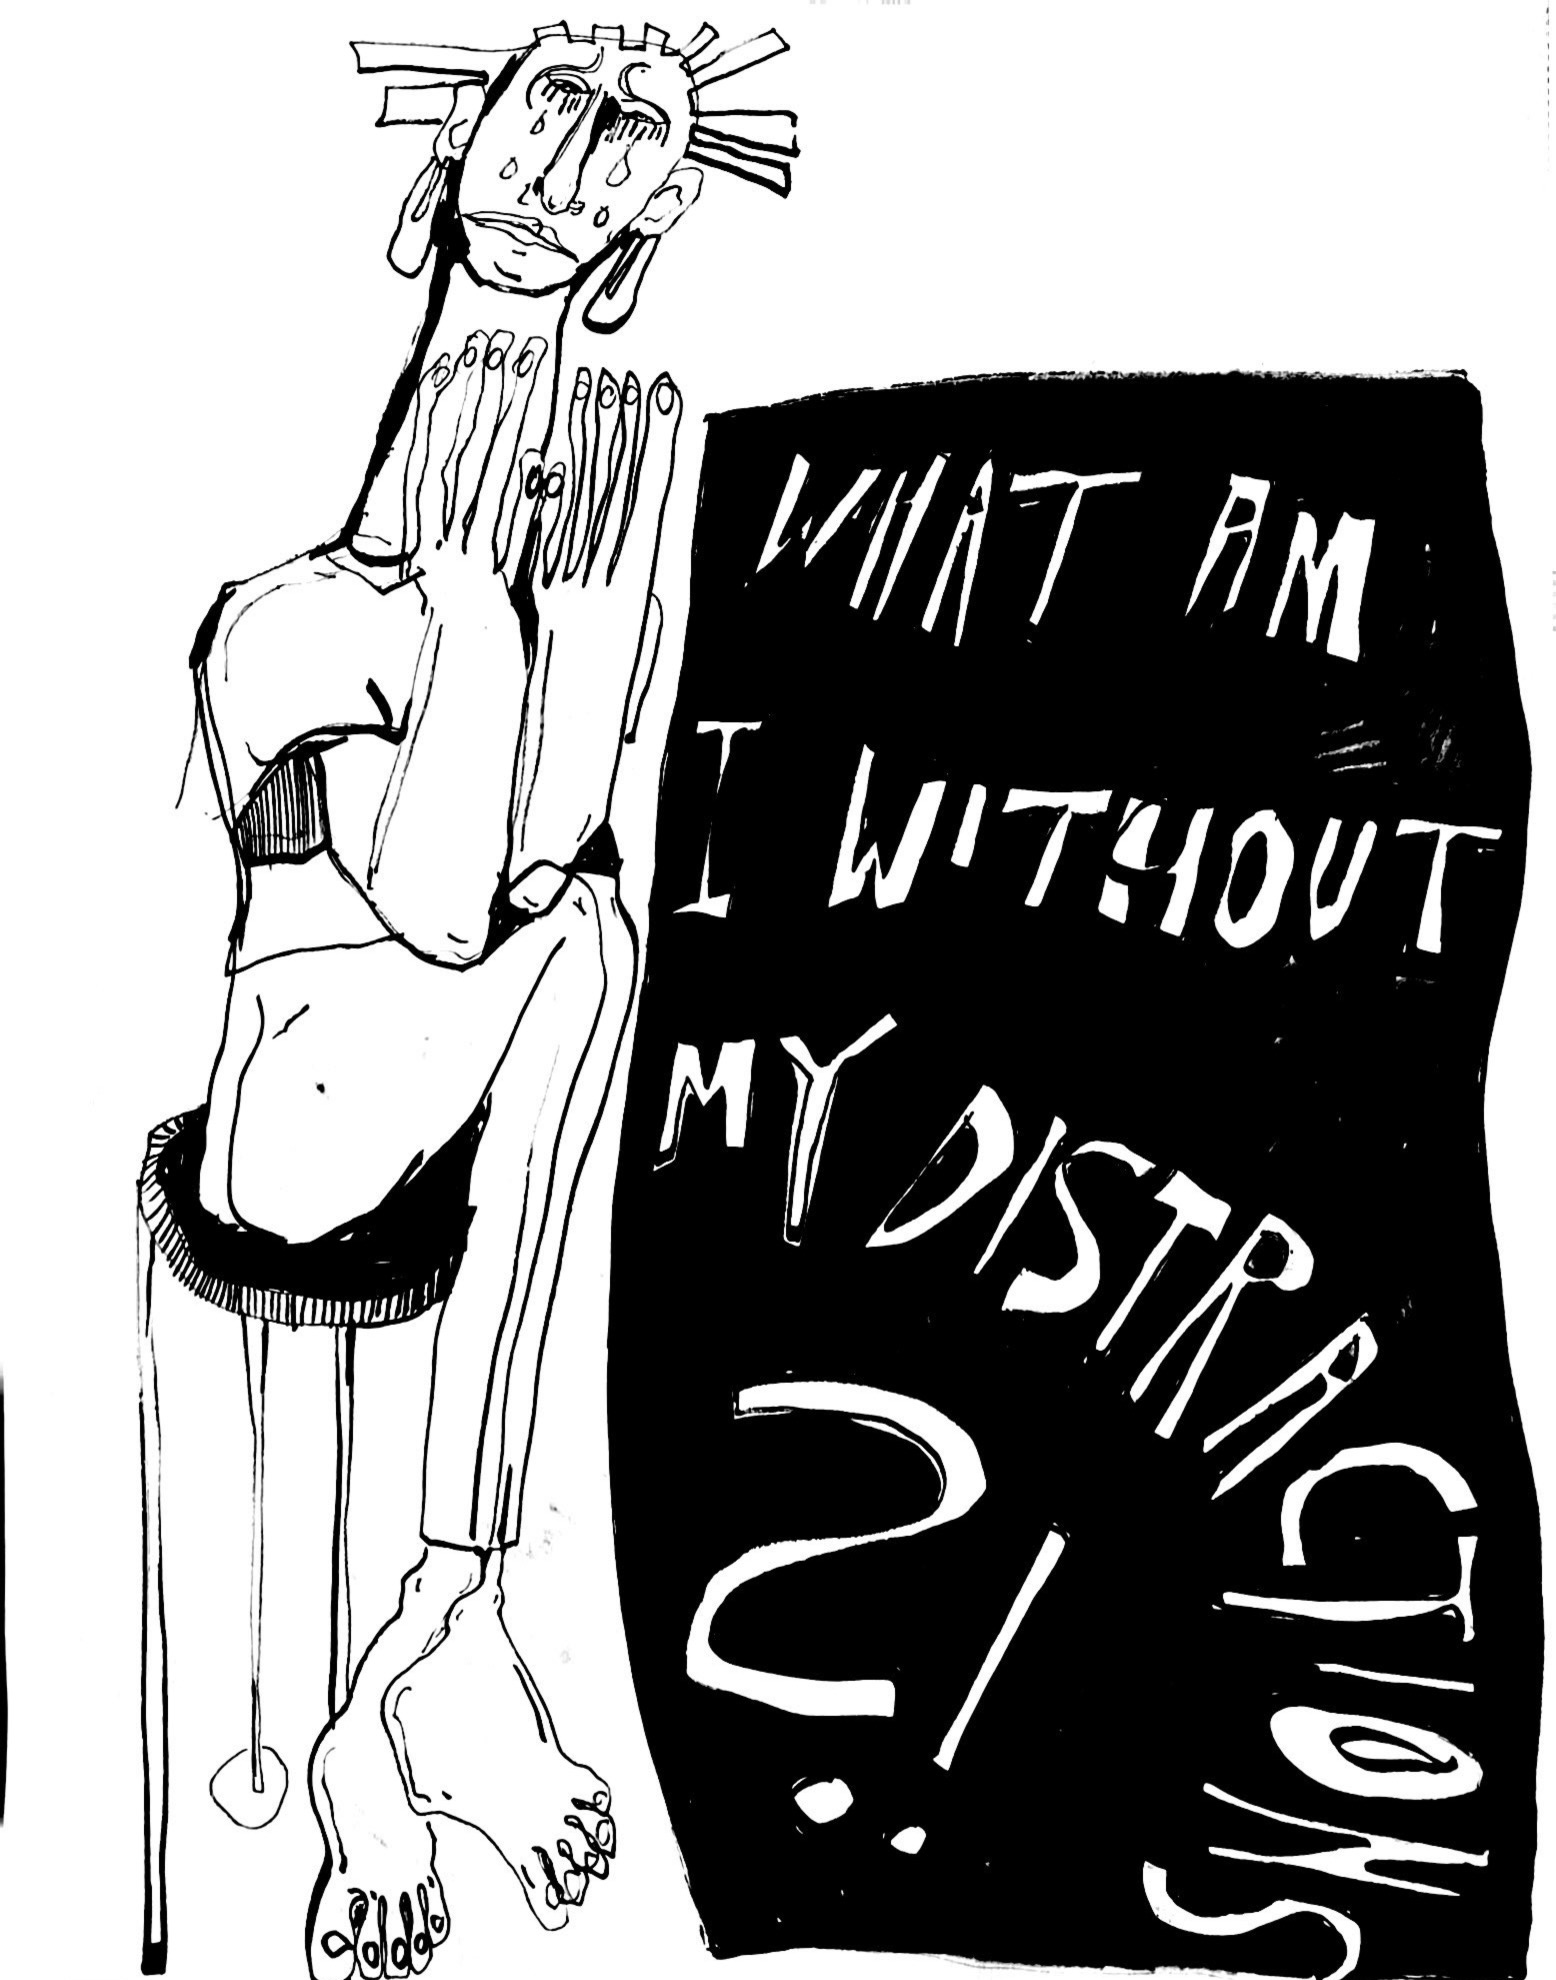 WHAT AM
I WITHOUT
MY DISTRACTIONS
?!